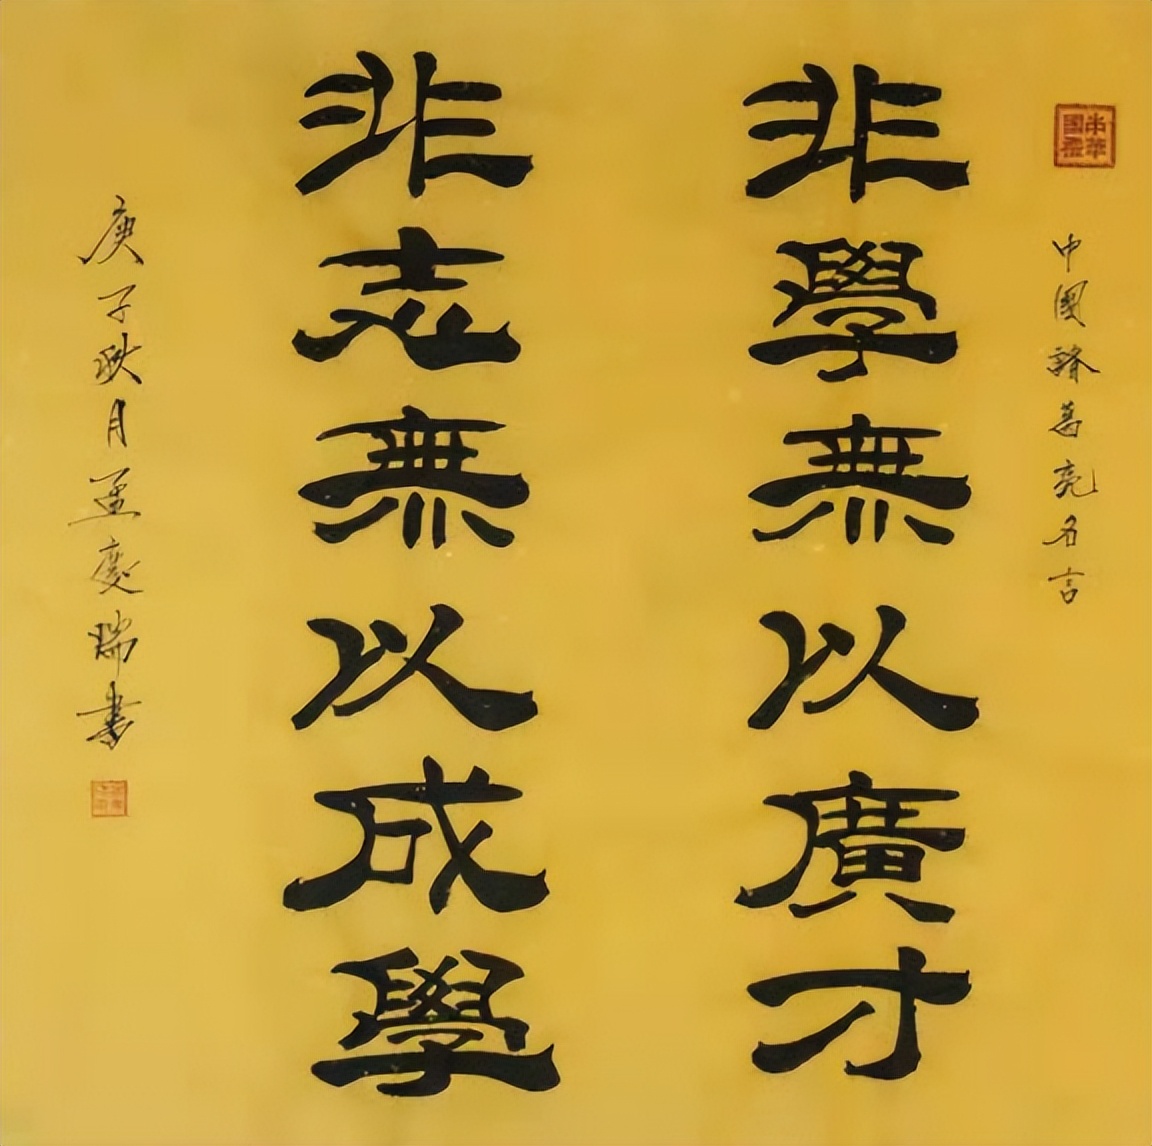 中華國禮
中國諸葛亮名言
非學無以廣才
非志無以成學
庚子秋月孟慶瑞書